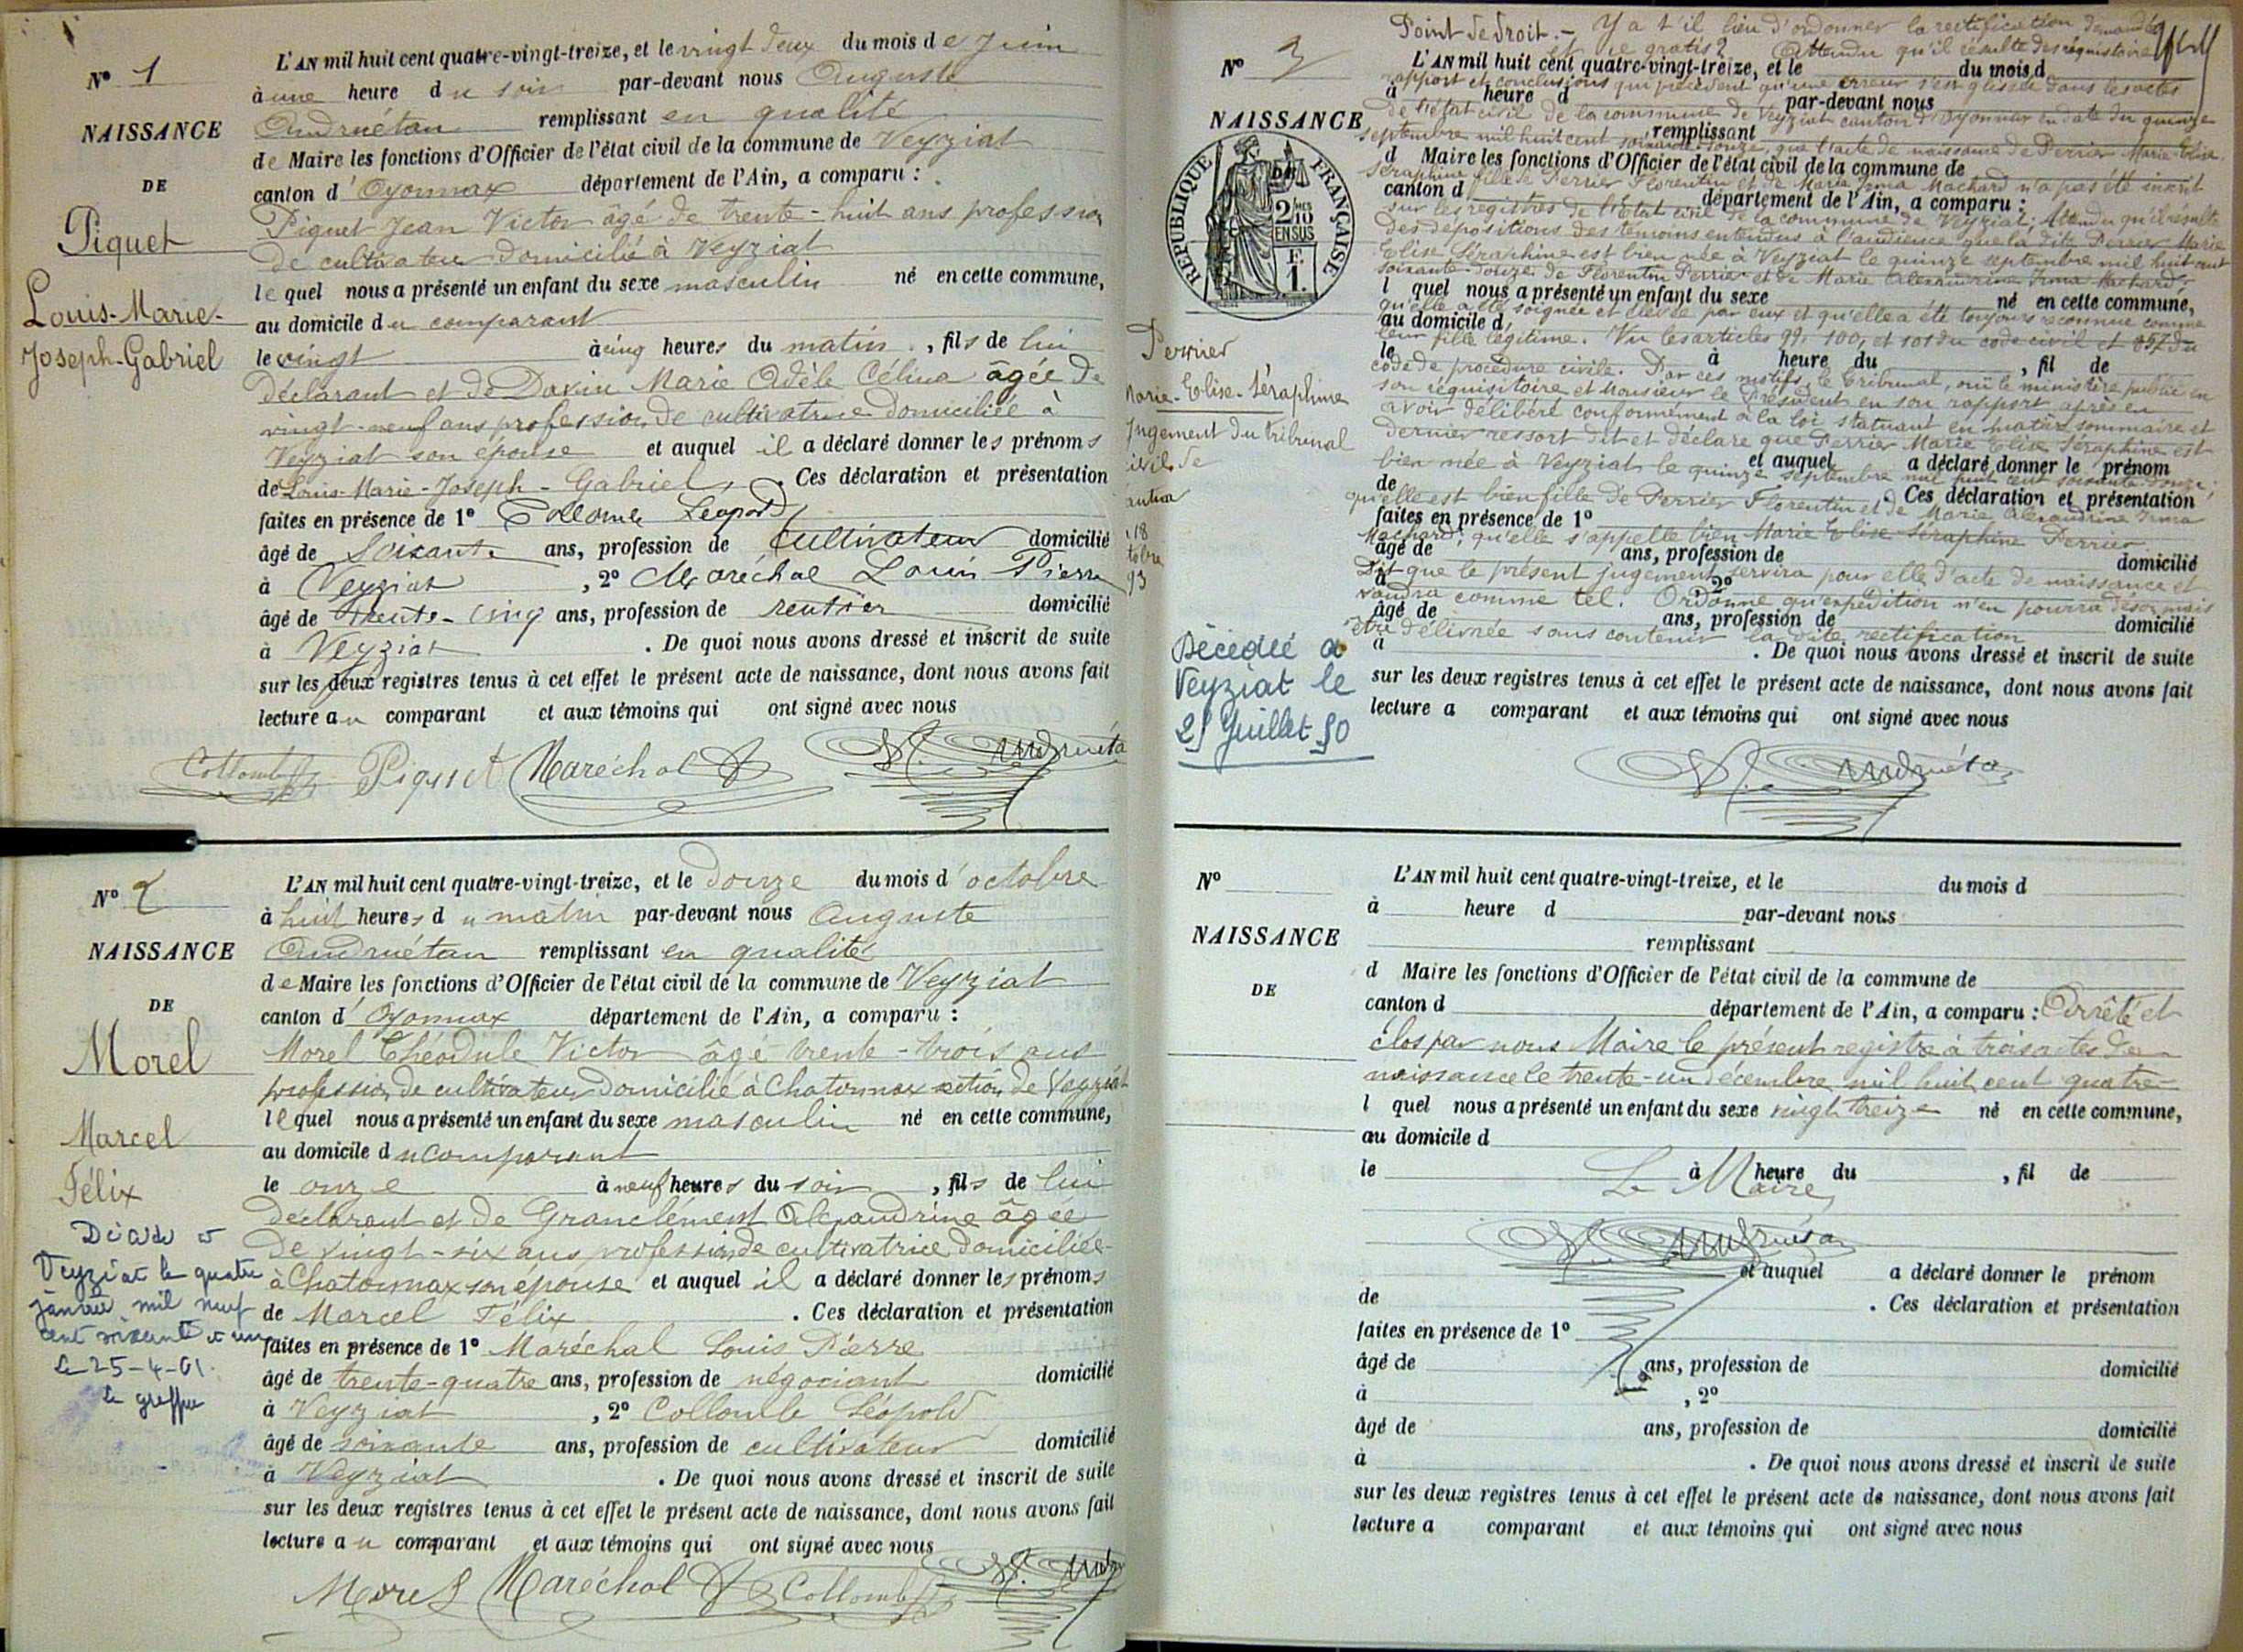 N° 1
NAISSANCE
DE
Piquet
Louis-Marie-
Joseph-Gabriel
L'AN mil huit cent quatre-vingt-treize, et le vingt deux du mois de Juin
à une heure du soir par-devant nous Auguste
Andruétan remplissant en qualité
de Maire les fonctions d'Officier de l'état civil de la commune de Veyziat
canton d'Oyonnax département de l'Ain, a comparu :
Piquet Jean Victor âgé de trente-huit ans profession
de cultivateur domicilié à Veyziat
lequel nous a présenté un enfant du sexe masculin né en cette commune,
au domicile du comparant
le vingt à cinq heures du matin, fils de lui
déclarant et de Marie Adèle Célina âgée de
vingt-neuf ans profession de cultivatrice domiciliée à
Veyziat son épouse et auquel il a déclaré donner les prénoms
de Louis-Marie-Joseph-Gabriel. Ces déclaration et présentation
faites en présence de 1° Collomb Léopold
âgé de soixante ans, profession de cultivateur domicilié
à Veyziat, 2° Maréchal Louis Pierre
âgé de trente-cinq ans, profession de rentier domicilié
à Veyziat. De quoi nous avons dressé et inscrit de suite
sur les deux registres tenus à cet effet le présent acte de naissance, dont nous avons fait
lecture au comparant et aux témoins qui ont signé avec nous
Collomb Piquet Maréchal Andruétan
N° 2
NAISSANCE
DE
Morel
Marcel
Félix
Décédé à
Veyziat le quatre
janvier mil neuf
cent soixante et un
Le 25-4-61.
le greffier
L'AN mil huit cent quatre-vingt-treize, et le douze du mois d'octobre
à huit heures du matin par-devant nous Auguste
Andruétan remplissant en qualité
de Maire les fonctions d'Officier de l'état civil de la commune de Veyziat
canton d'Oyonnax département de l'Ain, a comparu :
Morel Théodule Victor âgé trente-trois ans
profession de cultivateur domicilié à Chatonnax section de Veyziat
lequel nous a présenté un enfant du sexe masculin né en cette commune,
au domicile du comparant
le onze à neuf heures du soir, fils de lui
déclarant et de Granclément Alexandrine âgée
de vingt-six ans profession de cultivatrice domiciliée
à Chatonnax son épouse et auquel il a déclaré donner les prénoms
de Marcel Félix. Ces déclaration et présentation
faites en présence de 1° Maréchal Louis Pierre
âgé de trente-quatre ans, profession de négociant domicilié
à Veyziat, 2° Collomb Léopold
âgé de soixante ans, profession de cultivateur domicilié
à Veyziat. De quoi nous avons dressé et inscrit de suite
sur les deux registres tenus à cet effet le présent acte de naissance, dont nous avons fait
lecture au comparant et aux témoins qui ont signé avec nous
Morel Maréchal Collomb
N° 3
NAISSANCE
RÉPUBLIQUE FRANÇAISE
2/10 EN SUS
F. 1.
Perrier
Marie-Elise-Séraphine
Jugement du tribunal
civil de
Décédée à
Veyziat le
25 Juillet 50
Point de droit. - Y a t'il lieu d'ordonner la rectification demandée
et ce gratis? Attendu qu'il résulte des réquisitoire
L'AN mil huit cent quatre-vingt-treize, et le du mois d
rapport et conclusions qui précèdent qu'une erreur s'est glissée dans les actes
à heure d par-devant nous
de l'état civil de la commune de Veyziat canton d'Oyonnax en date du quinze
remplissant
septembre mil huit cent soixante-douze, que l'acte de naissance de Perrier Marie Elise
d Maire les fonctions d'Officier de l'état civil de la commune de
Séraphine fille de Perrier Florentin et de Marie Irma Machard n'a pas été inscrit
canton d département de l'Ain, a comparu :
sur les registres de l'Etat civil de la commune de Veyziat; Attendu qu'il résulte
des dépositions des témoins entendus à l'audience que la dite Perrier Marie
Elise Séraphine est bien née à Veyziat le quinze septembre mil huit cent
soixante-douze de Florentin Perrier et de Marie Alexandrine Irma Machard,
l quel nous a présenté un enfant du sexe né en cette commune,
qu'elle a été soignée et élevée par eux et qu'elle a été toujours reconnue comme
au domicile d
leur fille légitime. Vu les articles 99, 100, et 101 du code civil et 857 du
le à heure du , fil de
code de procédure civile. Par ces motifs, le Tribunal, ouï le ministère public en
son réquisitoire et Monsieur le Président en son rapport après en
avoir délibéré conformément à la loi statuant en matière sommaire et
dernier ressort dit et déclare que Perrier Marie Elise Séraphine est
et auquel a déclaré donner le prénom
bien née à Veyziat le quinze septembre mil huit cent soixante-douze;
de . Ces déclaration et présentation
qu'elle est bien fille de Perrier Florentin et de Marie Alexandrine Irma
faites en présence de 1°
Machard; qu'elle s'appelle bien Marie Elise Séraphine Perrier
âgé de ans, profession de domicilié
Dit que le présent jugement servira pour elle d'acte de naissance et
à , 2°
vaudra comme tel. Ordonne qu'expédition n'en pourra désormais
âgé de ans, profession de domicilié
être délivrée sans contenir la dite rectification
à . De quoi nous avons dressé et inscrit de suite
sur les deux registres tenus à cet effet le présent acte de naissance, dont nous avons fait
lecture a comparant et aux témoins qui ont signé avec nous
Andruétan
N°
NAISSANCE
DE
L'AN mil huit cent quatre-vingt-treize, et le du mois d
à heure d par-devant nous
remplissant
d Maire les fonctions d'Officier de l'état civil de la commune de
canton d département de l'Ain, a comparu : Arrêté et
clos par nous Maire le présent registre à trois actes de
naissance le trente-un décembre mil huit cent quatre-
l quel nous a présenté un enfant du sexe vingt treize né en cette commune,
au domicile d
le à heure du , fil de
Le Maire
Andruétan
et auquel a déclaré donner le prénom
de . Ces déclaration et présentation
faites en présence de 1°
âgé de ans, profession de domicilié
à , 2°
âgé de ans, profession de domicilié
à . De quoi nous avons dressé et inscrit de suite
sur les deux registres tenus à cet effet le présent acte de naissance, dont nous avons fait
lecture a comparant et aux témoins qui ont signé avec nous